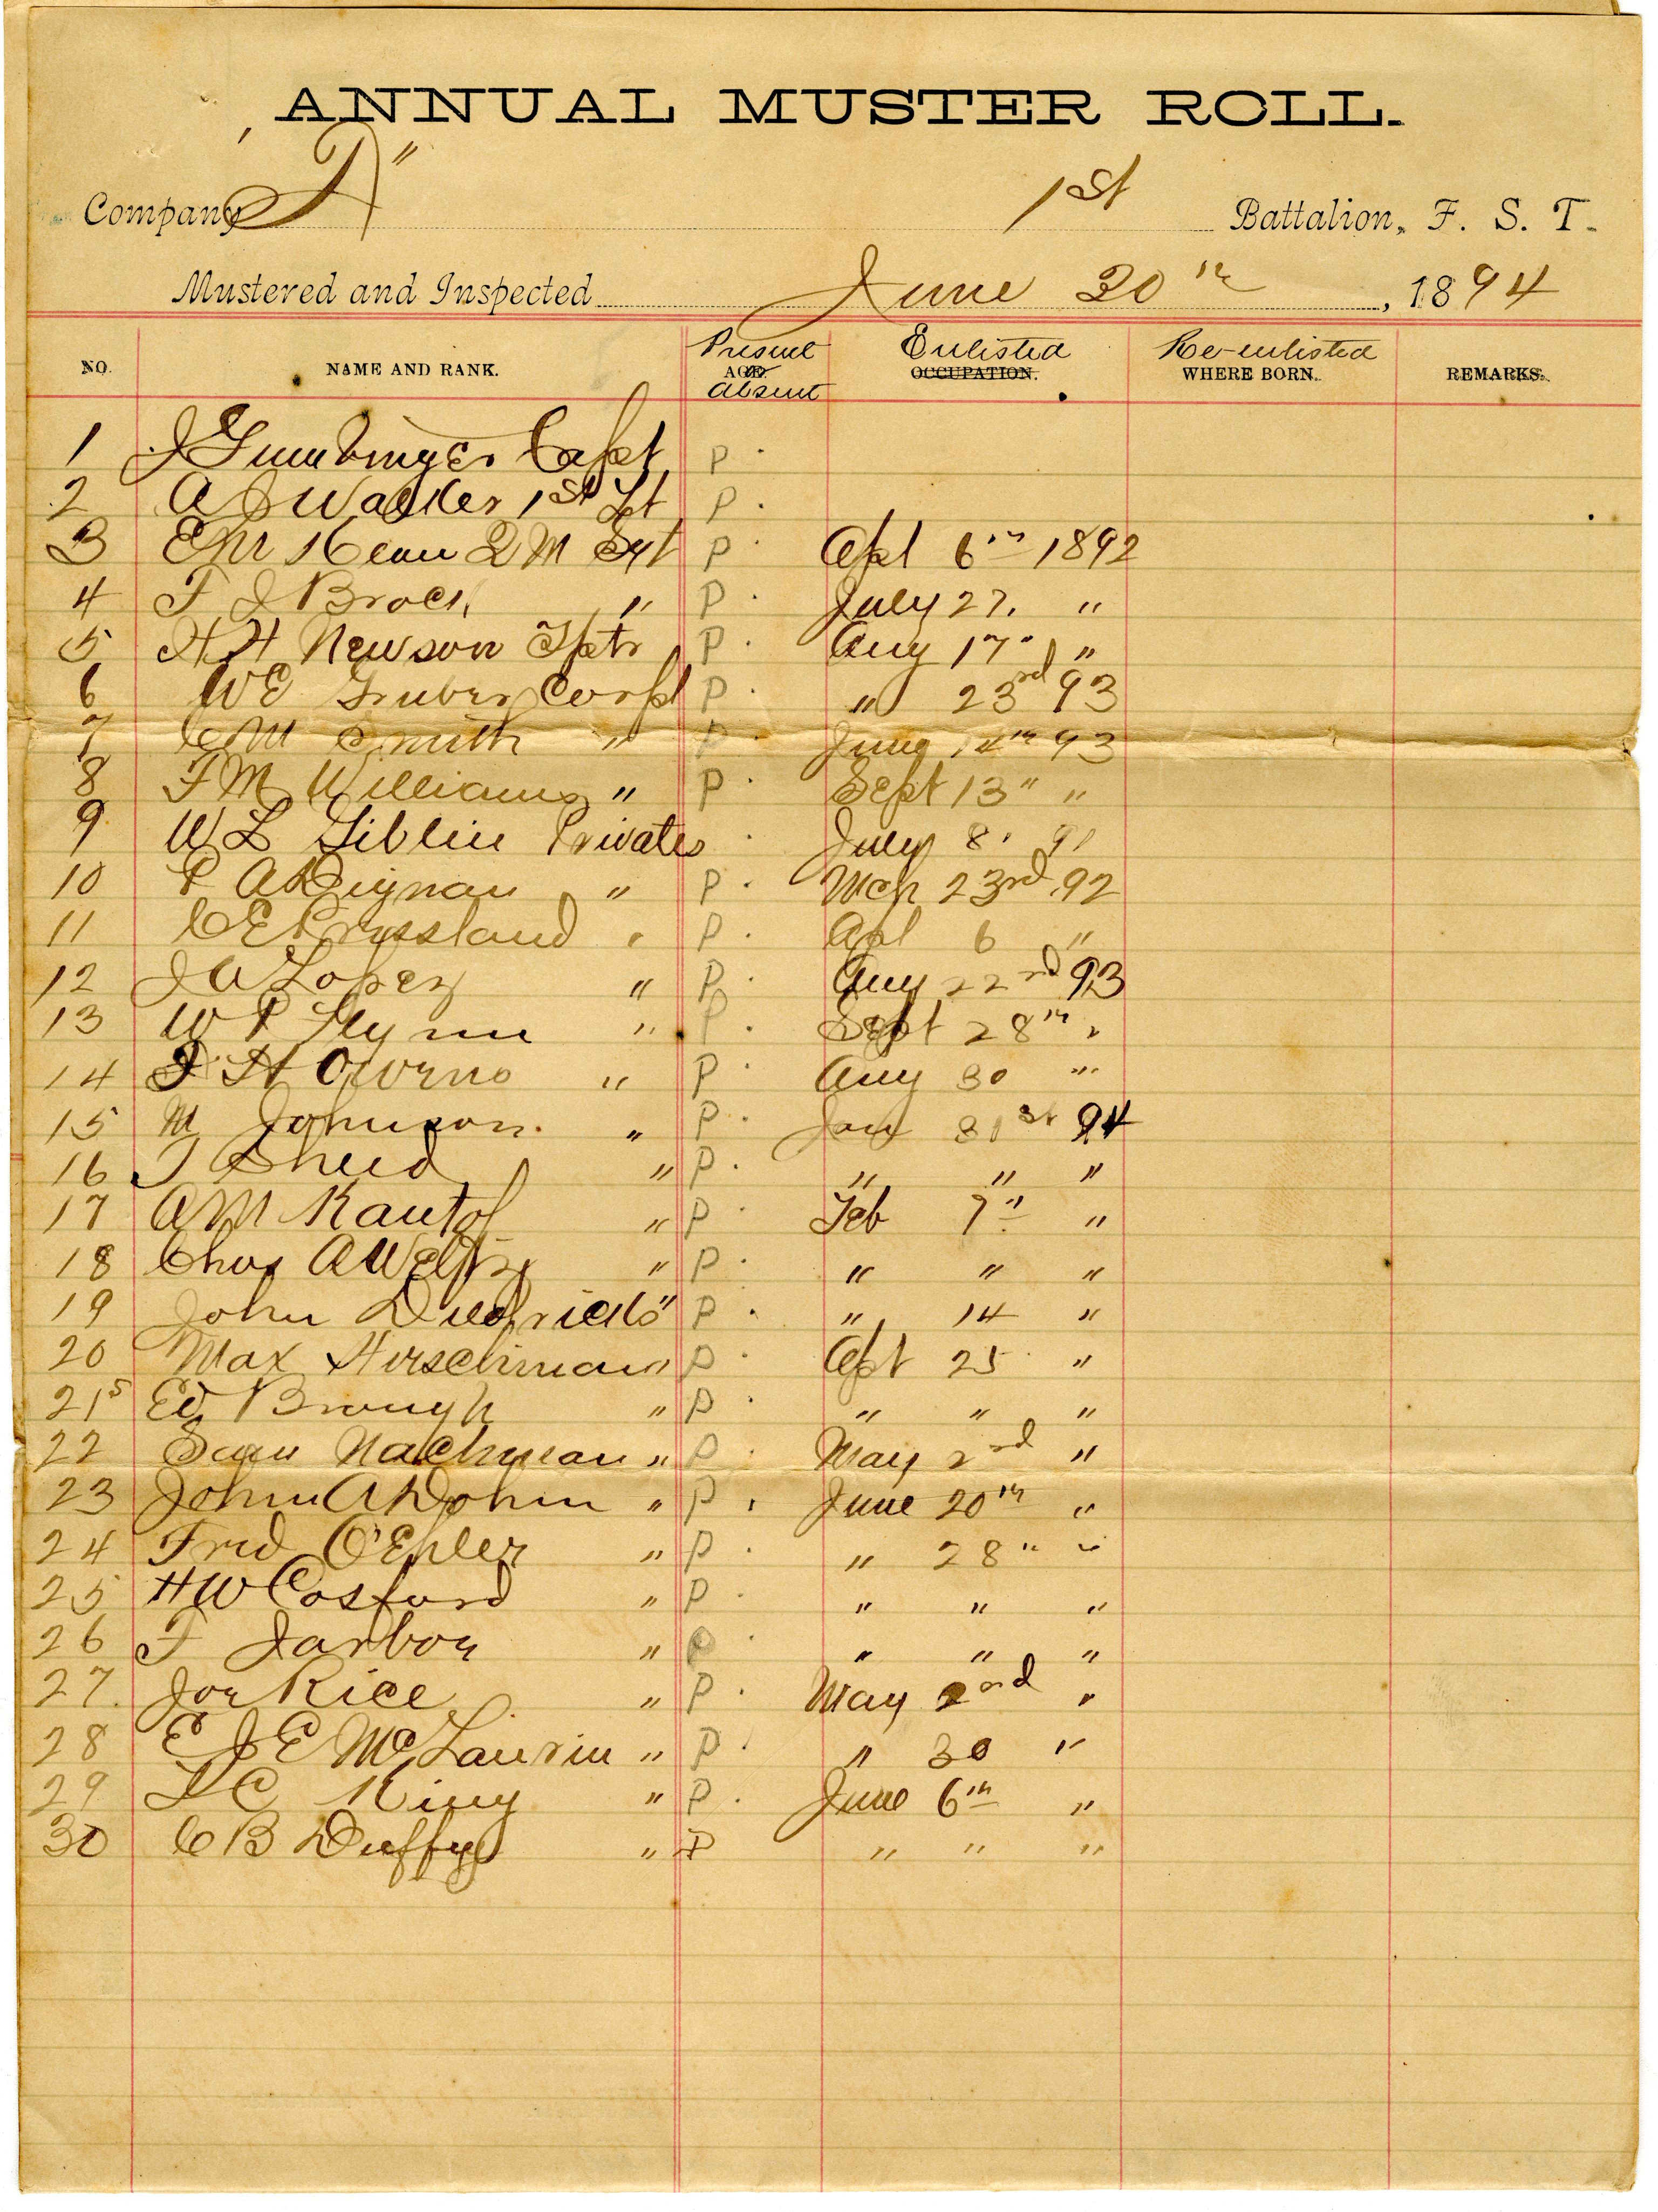 ANNUAL MUSTER ROLL.
Company "A" 1st Battalion, F. S. T.
Mustered and Inspected June 20th, 1894
NO. NAME AND RANK. Present AGE. or absent Enlisted OCCUPATION. Re-enlisted WHERE BORN. REMARKS.
1 J Gumbinger Capt P
2 A J Walker 1st Lt P
3 Eph Kean Q M Sgt P Apl 6th 1892
4 F J Brock " P July 27. "
5 H H Newson P Aug 17 "
6 WE Gruber Corpl P " 23rd 93
7 C M Smith " P June 14th 93
8 F M Williams " P Sept 13" "
9 W L Giblin Privates July 8. 91
10 P A Dignan " P Mch 23rd 92
11 C E Pressland " P Apl 6 "
12 J A Lopez " P Aug 22nd 93
13 W P Flynn " P Sept 28th "
14 F H Owens " P Aug 30 "
15 M Johnson. " P Jany 31st 94
16 " P " " "
17 A M Kantof " P Feb 7th "
18 Chas A " P " " "
19 John " P " 14 "
20 Max Hirschman " P Apl 25 "
21 Ed Brough " P " " "
22 Sam Nachman " P May 2nd "
23 John A Dohm " P June 20th "
24 Fred O'Ehler " P " 28" "
25 H W Cosford " P " " "
26 F Jarboy " P " " "
27. Joe Rice " P May 2nd "
28 E J E McLaurin " P " 30 "
29 L C King " P June 6th "
30 C B Duffy " P " " "